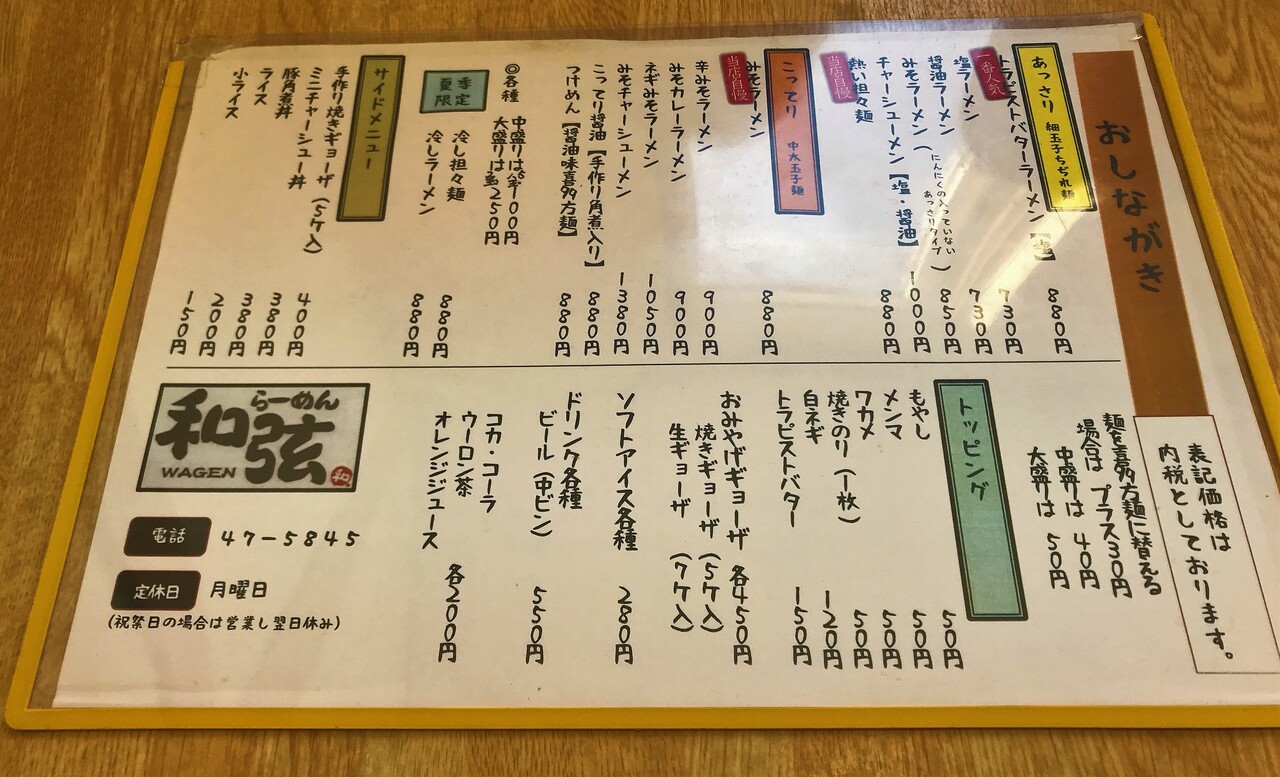 おしながき
表記価格は
内税としております。
あっさり 細玉子ちぢれ麺
トラピストバターラーメン【塩】 880円
一番人気
塩ラーメン 730円
醤油ラーメン 730円
みそラーメン(にんにくの入っていないあっさりタイプ) 850円
チャーシューメン【塩・醤油】 1000円
当店自慢
熱い担々麺 880円
こってり 中太玉子麺
当店自慢
みそラーメン 880円
辛みそラーメン 900円
みそカレーラーメン 900円
ネギみそラーメン 1050円
みそチャーシューメン 1380円
こってり醤油【手作り角煮入り】 880円
つけめん【醤油味喜多方麺】 880円
◎各種 中盛りは 100円
大盛りは 250円
季定
夏限
冷し担々麺 880円
冷しラーメン 880円
サイドメニュー
手作り焼きギョーザ(5ヶ入) 400円
ミニチャーシュー丼 380円
豚角煮丼 380円
ライス 200円
小ライス 150円
麺を喜多方麺に替える
場合は プラス30円
中盛りは 40円
大盛りは 50円
トッピング
もやし 50円
メンマ 50円
ワカメ 50円
焼きのり(一枚) 50円
白ネギ 120円
トラピストバター 150円
おみやげギョーザ 各450円
焼きギョーザ(5ヶ入)
生ギョーザ(7ヶ入)
ソフトアイス各種 280円
ドリンク各種
ビール(中ビン) 550円
コカ・コーラ
ウーロン茶
オレンジジュース 各200円
らーめん
和弦
WAGEN
和
電話 47-5845
定休日 月曜日
(祝祭日の場合は営業し翌日休み)